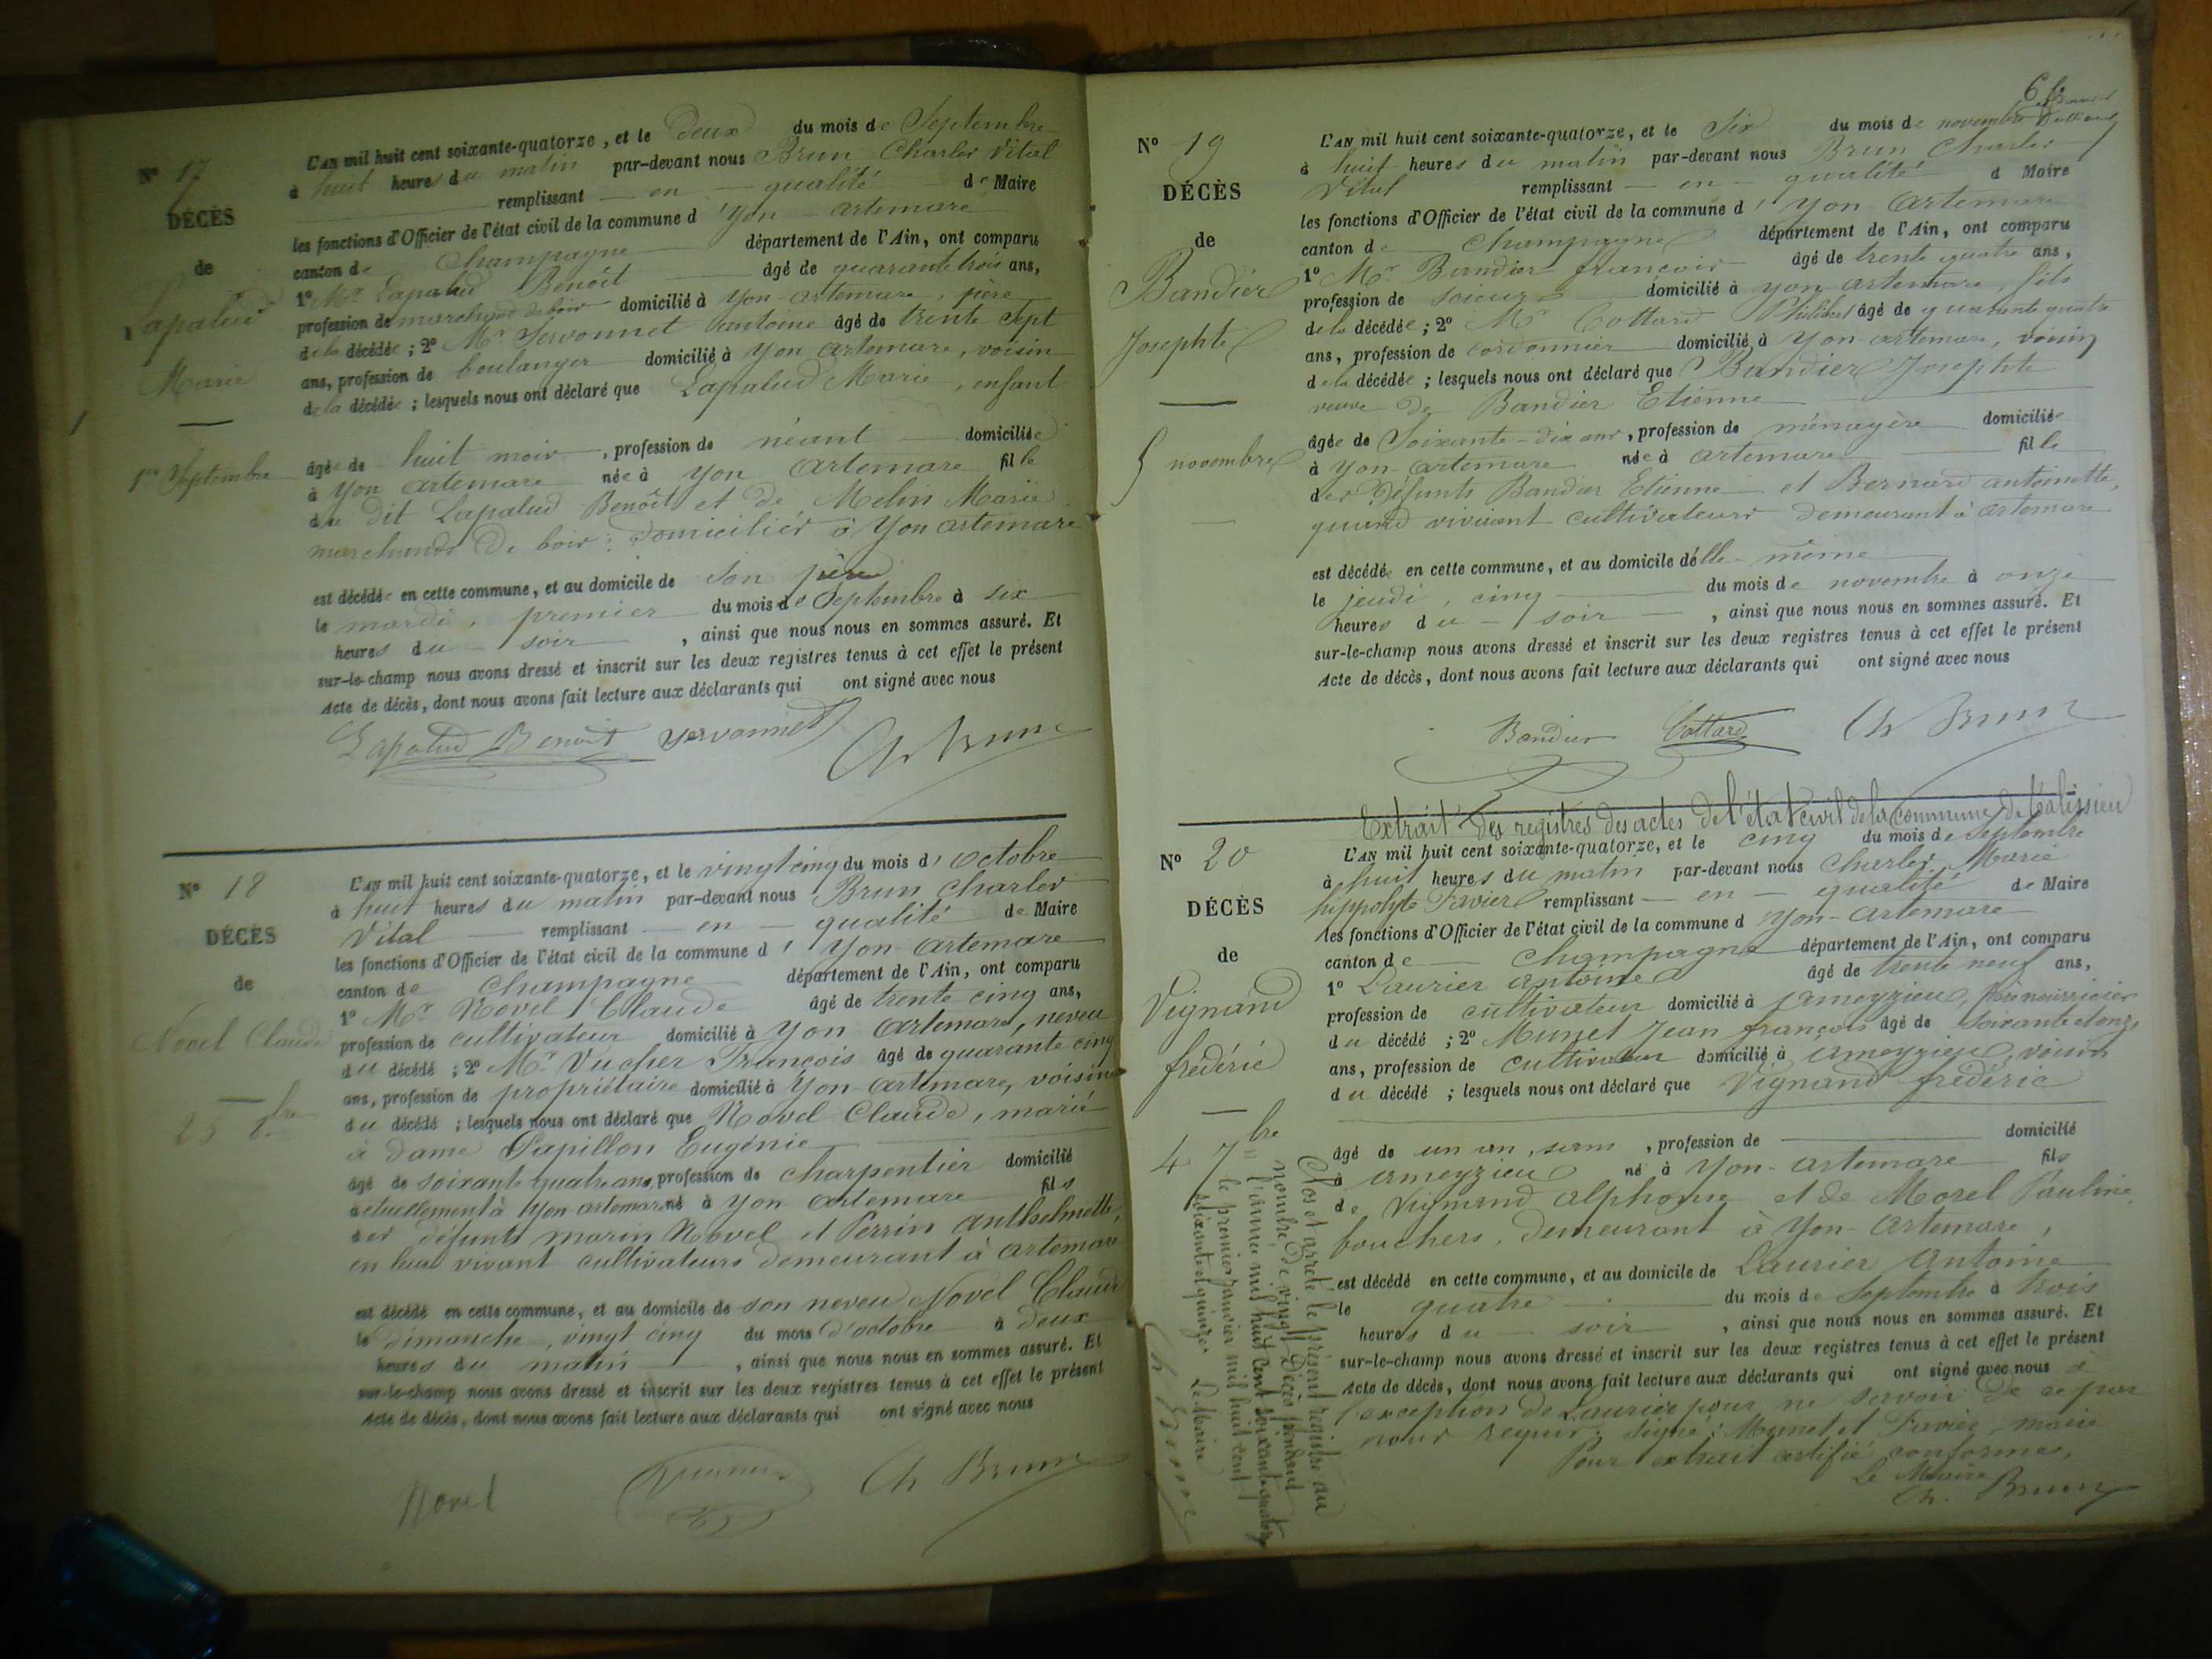 Nº 17
DÉCÈS
de
Lapalud
Marie
1er Septembre
L'AN mil huit cent soixante-quatorze, et le Deux du mois de Septembre
à huit heures du matin par-devant nous Brun Charles Vital
remplissant en qualité de Maire
les fonctions d'Officier de l'état civil de la commune d'Yon-artemare
canton de Champagne département de l'Ain, ont comparu
1º Mr Lapalud Benoît âgé de quarante trois ans,
profession de marchand de bois domicilié à Yon-artemare, père
de la décédée ; 2º Mr Servonnet antoine âgé de trente sept
ans, profession de boulanger domicilié à Yon artemare, voisin
de la décédée ; lesquels nous ont déclaré que Lapalud Marie, enfant
âgée de huit mois, profession de néant domiciliée
à Yon artemare née à Yon artemare fille
du dit Lapalud Benoît et de Melin Marie
marchands de bois domiciliés à Yon artemare
est décédée en cette commune, et au domicile de son père
le mardi, premier du mois de Septembre à six
heures du soir, ainsi que nous nous en sommes assuré. Et
sur-le-champ nous avons dressé et inscrit sur les deux registres tenus à cet effet le présent
Acte de décès, dont nous avons fait lecture aux déclarants qui ont signé avec nous
Lapalud Benoit Servonnet Ch Brun
Nº 18
DÉCÈS
de
Novel Claude
25 8bre
L'AN mil huit cent soixante-quatorze, et le vingt cinq du mois d'octobre
à huit heures du matin par-devant nous Brun Charles
Vital remplissant en qualité de Maire
les fonctions d'Officier de l'état civil de la commune d'Yon-artemare
canton de Champagne département de l'Ain, ont comparu
1º Mr Novel Claude âgé de trente cinq ans,
profession de cultivateur domicilié à Yon-artemare, neveu
du décédé ; 2º Mr Vucher François âgé de quarante cinq
ans, profession de propriétaire domicilié à Yon-artemare, voisin
du décédé ; lesquels nous ont déclaré que Novel Claude, marié
à dame Papillon Eugénie
âgé de soixante quatre ans, profession de charpentier domicilié
actuellement à Yon artemare né à Yon artemare fils
des défunts marin Novel et Perrin anthelmette,
en leur vivant cultivateurs demeurant à artemare
est décédé en cette commune, et au domicile de son neveu Novel Claude
le dimanche, vingt cinq du mois d'octobre à deux
heures du matin, ainsi que nous nous en sommes assuré. Et
sur-le-champ nous avons dressé et inscrit sur les deux registres tenus à cet effet le présent
Acte de décès, dont nous avons fait lecture aux déclarants qui ont signé avec nous
Novel Ch Brun
Nº 19
DÉCÈS
de
Bandier
Josephte
5 novembre
L'AN mil huit cent soixante-quatorze, et le Six du mois de novembre
à huit heures du matin par-devant nous Brun Charles
Vital remplissant en qualité d Maire
les fonctions d'Officier de l'état civil de la commune d'Yon-artemare
canton de Champagne département de l'Ain, ont comparu
1º Mr Bandier françois âgé de trente quatre ans,
profession de scieur domicilié à Yon artemare, fils
de la décédée ; 2º Mr Cottard Philibert âgé de quarante quatre
ans, profession de cordonnier domicilié à Yon-artemare, voisin
de la décédée ; lesquels nous ont déclaré que Bandier Josephte
veuve de Bandier Etienne
âgée de Soixante-dix ans, profession de ménagère domiciliée
à Yon-artemare née à artemare fille
des défunts Bandier Etienne et Bernard antoinette,
quand vivaient cultivateurs demeurant à artemare
est décédée en cette commune, et au domicile d'elle-même
le jeudi, cinq du mois de novembre à onze
heures du soir, ainsi que nous nous en sommes assuré. Et
sur-le-champ nous avons dressé et inscrit sur les deux registres tenus à cet effet le présent
Acte de décès, dont nous avons fait lecture aux déclarants qui ont signé avec nous
Bandier Cottard Ch Brun
Nº 20
DÉCÈS
de
Vignand
frédéric
4 7bre
Extrait des registres des actes de l'état civil de la commune de Talissieu
L'AN mil huit cent soixante-quatorze, et le cinq du mois de Septembre
à huit heures du matin par-devant nous Charles Marie
hippolyte Favier remplissant en qualité de Maire
les fonctions d'Officier de l'état civil de la commune d Yon-artemare
canton de Champagne département de l'Ain, ont comparu
1º Laurier antoine âgé de trente neuf ans,
profession de cultivateur domicilié à ameyzieu, père nourricier
du décédé ; 2º Munet Jean françois âgé de soixante et onze
ans, profession de cultivateur domicilié à ameyzieu, voisin
du décédé ; lesquels nous ont déclaré que Vignand frédéric
âgé de un an, sans, profession de domicilié
à ameyzieu né à Yon-artemare fils
de Vignand alphonse et de Morel Pauline,
bouchers, demeurant à Yon-artemare,
est décédé en cette commune, et au domicile de Laurier antoine
le quatre du mois de Septembre à trois
heures du soir, ainsi que nous nous en sommes assuré. Et
sur-le-champ nous avons dressé et inscrit sur les deux registres tenus à cet effet le présent
Acte de décès, dont nous avons fait lecture aux déclarants qui ont signé avec nous à
l'exception de Laurier pour ne savoir de ce par
nous requis. Signé : Munet et Favier, maire
Pour extrait certifié conforme,
Le Maire
Ch. Brun
Clos et arrêté le présent registre au
nombre de vingt Décès pendant
l'année mil huit cent soixante quatorze
le premier janvier mil huit cent
soixante et quinze. Le Maire
Ch Brun